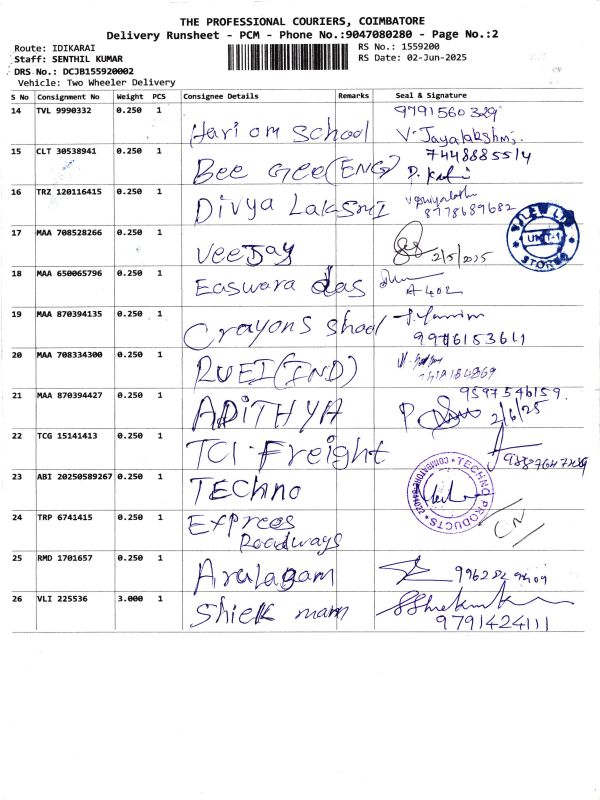 THE PROFESSIONAL COURIERS, COIMBATORE
Delivery Runsheet - PCM - Phone No.:9047080280 - Page No.:2
Route: IDIKARAI
Staff: SENTHIL KUMAR
DRS No.: DCJB155920002
Vehicle: Two Wheeler Delivery
RS No.: 1559200
RS Date: 02-Jun-2025
S No Consignment No Weight PCS Consignee Details Remarks Seal & Signature
14 TVL 9990332 0.250 1 Hari om School 9791560329
V. Jayalakshmi
15 CLT 30538941 0.250 1 Bee Gee (ENG) 7448885514
16 TRZ 120116415 0.250 1 Divya LakSmI
8778689682
17 MAA 708528266 0.250 1 VeeJay 2/5/2025
UNIT-1
STORES
18 MAA 650065796 0.250 1 Easwara das
A 402
19 MAA 870394135 0.250 1 Crayons shool
9946153611
20 MAA 708334300 0.250 1 RUEI (IND)
21 MAA 870394427 0.250 1 ADITHYA 9597546159.
2/6/25
22 TCG 15141413 0.250 1 TCI-Freight
23 ABI 20250589267 0.250 1 TECHNO
TECHNO PRODUCTS
24 TRP 6741415 0.250 1 Exprees
Roadways
CN
25 RMD 1701657 0.250 1 Arulagam
26 VLI 225536 3.000 1 Shiek mam
9791424111